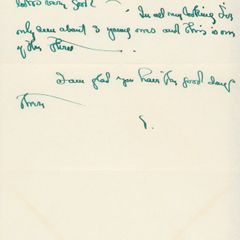 very good. In all my looking I've
only seen about 3 young ones and this is one
of the three
I am glad you have the good days